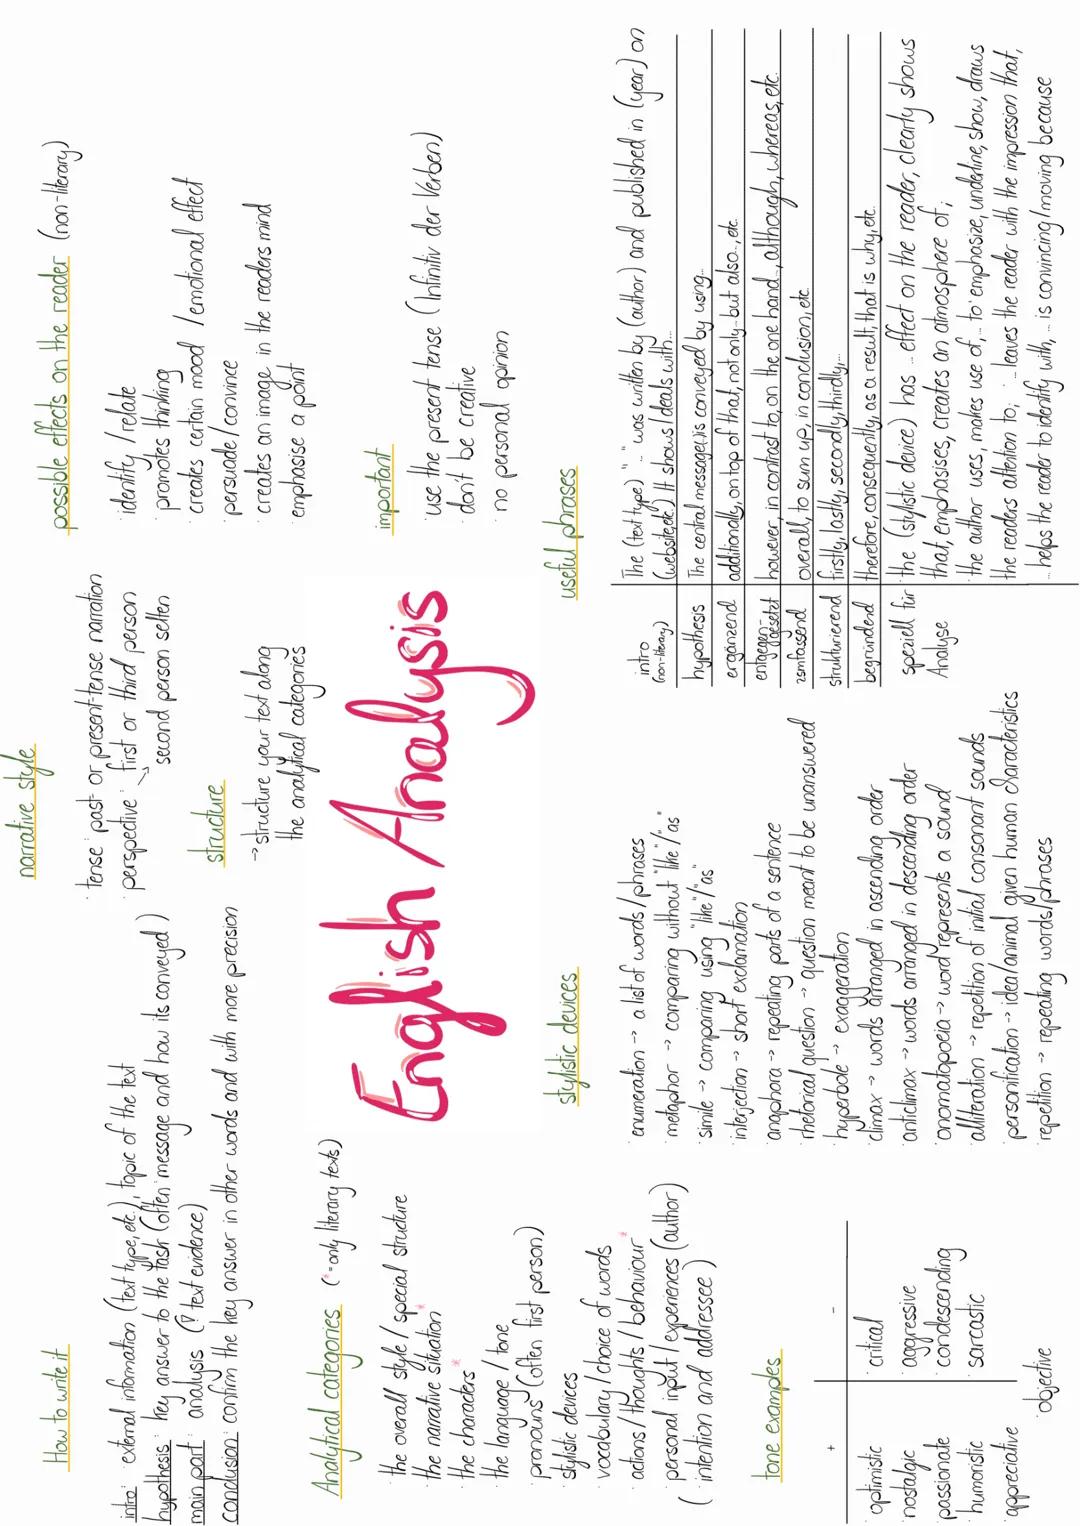 How to write it
intro: external information (text type, etc.), topic of the text
hypothesis: key answer to the task (often: message and how its conveyed)
main part: analysis (! text evidence)
conclusion: confirm the key answer in other words and with more precision
narrative style
· tense: past- or present-tense narration
· perspective: first or third person
→ second person selten
structure
→ structure your text along
the analytical categories
possible effects on the reader (non-literary)
· identify / relate
· promotes thinking
· creates certain mood / emotional effect
· persuade / convince
· creates an image in the readers mind
· emphasise a point
Analytical categories (*=only literary texts)
· the overall style / special structure
· the narrative situation*
· the characters*
· the language / tone
· pronouns (often first person)
· stylistic devices
· vocabulary / choice of words
· actions / thoughts / behaviour*
· personal input / experiences (author)
(· intention and addressee)
English Analysis
important
· use the present tense (Infinitiv der Verben)
· don't be creative
· no personal opinion
tone examples
+ -
· optimistic · critical
· nostalgic · aggressive
· passionate · condescending
· humoristic · sarcastic
· appreciative
· objective
stylistic devices
· enumeration → a list of words / phrases
· metaphor → comparing without "like" / "as"
· simile → comparing using "like" / "as"
· interjection → short exclamation
· anaphora → repeating parts of a sentence
· rhetorical question → question meant to be unanswered
· hyperbole → exaggeration
· climax → words arranged in ascending order
· anticlimax → words arranged in descending order
· onomatopoeia → word represents a sound
· alliteration → repetition of initial consonant sounds
· personification → idea/animal given human characteristics
· repetition → repeating words/phrases
useful phrases
intro (non-literary) The (text type) "..." was written by (author) and published in (year) on
(website, etc.) It shows / deals with...
hypothesis The central message(s) is conveyed by using...
ergänzend additionally, on top of that, not only... but also..., etc.
entgegen-gesetzt however, in contrast to, on the one hand..., although, whereas, etc.
zsmfassend overall, to sum up, in conclusion, etc.
strukturierend firstly, lastly, secondly, thirdly,...
begründend therefore, consequently, as a result, that is why, etc.
speziell für Analyse · the (stylistic device) has ... effect on the reader, clearly shows
that, emphasises, creates an atmosphere of;
· the author uses, makes use of, ... to emphasize, underline, show, draws
the readers attention to; ... leaves the reader with the impression that,
... helps the reader to identify with, ... is convincing / moving because